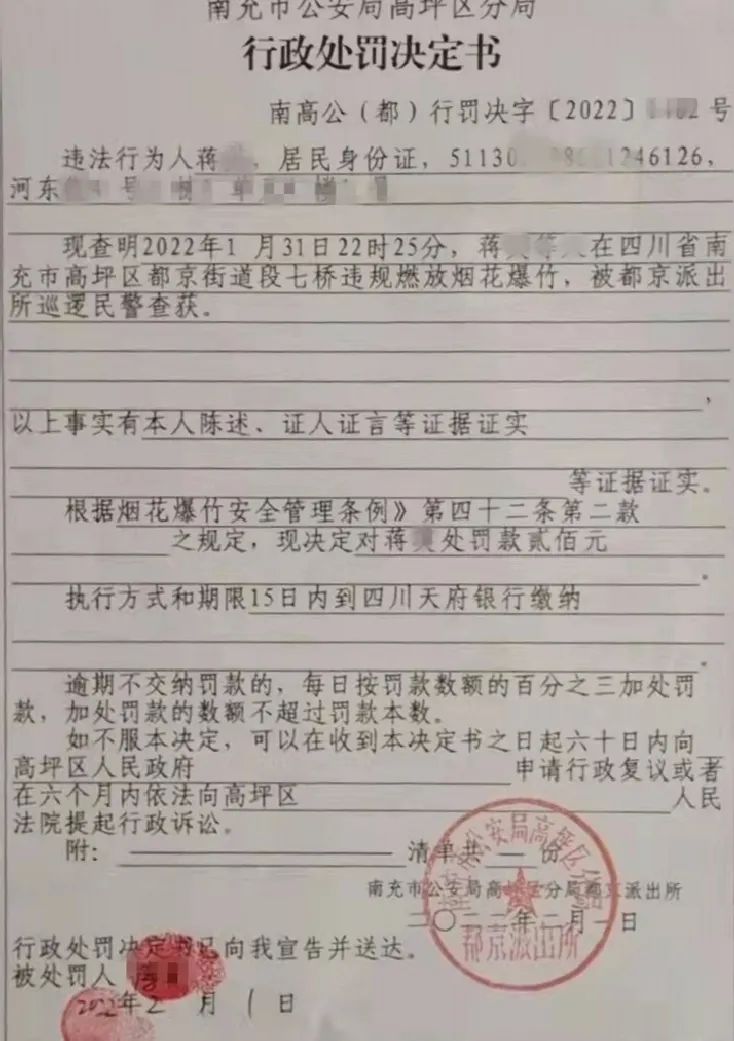 南充市公安局高坪区分局
行政处罚决定书
南高公（都）行罚决字〔2022〕 号
违法行为人蒋 ，居民身份证，51130 1246126，
河东 号
现查明2022年1月31日22时25分，蒋 在四川省南
充市高坪区都京街道段七桥违规燃放烟花爆竹，被都京派出
所巡逻民警查获。
，
以上事实有本人陈述、证人证言等证据证实
等证据证实。
根据烟花爆竹安全管理条例》第四十二条第二款
之规定，现决定对蒋 处罚款贰佰元
。
执行方式和期限15日内到四川天府银行缴纳
。
逾期不交纳罚款的，每日按罚款数额的百分之三加处罚
款，加处罚款的数额不超过罚款本数。
如不服本决定，可以在收到本决定书之日起六十日内向
高坪区人民政府 申请行政复议或者
在六个月内依法向高坪区 人民
法院提起行政诉讼。
附： 清单共 份
南充市公安局高坪区分局都京派出所
二〇二二年二月一日
都京派出所
行政处罚决定书已向我宣告并送达。
被处罚人
2022年2月1日